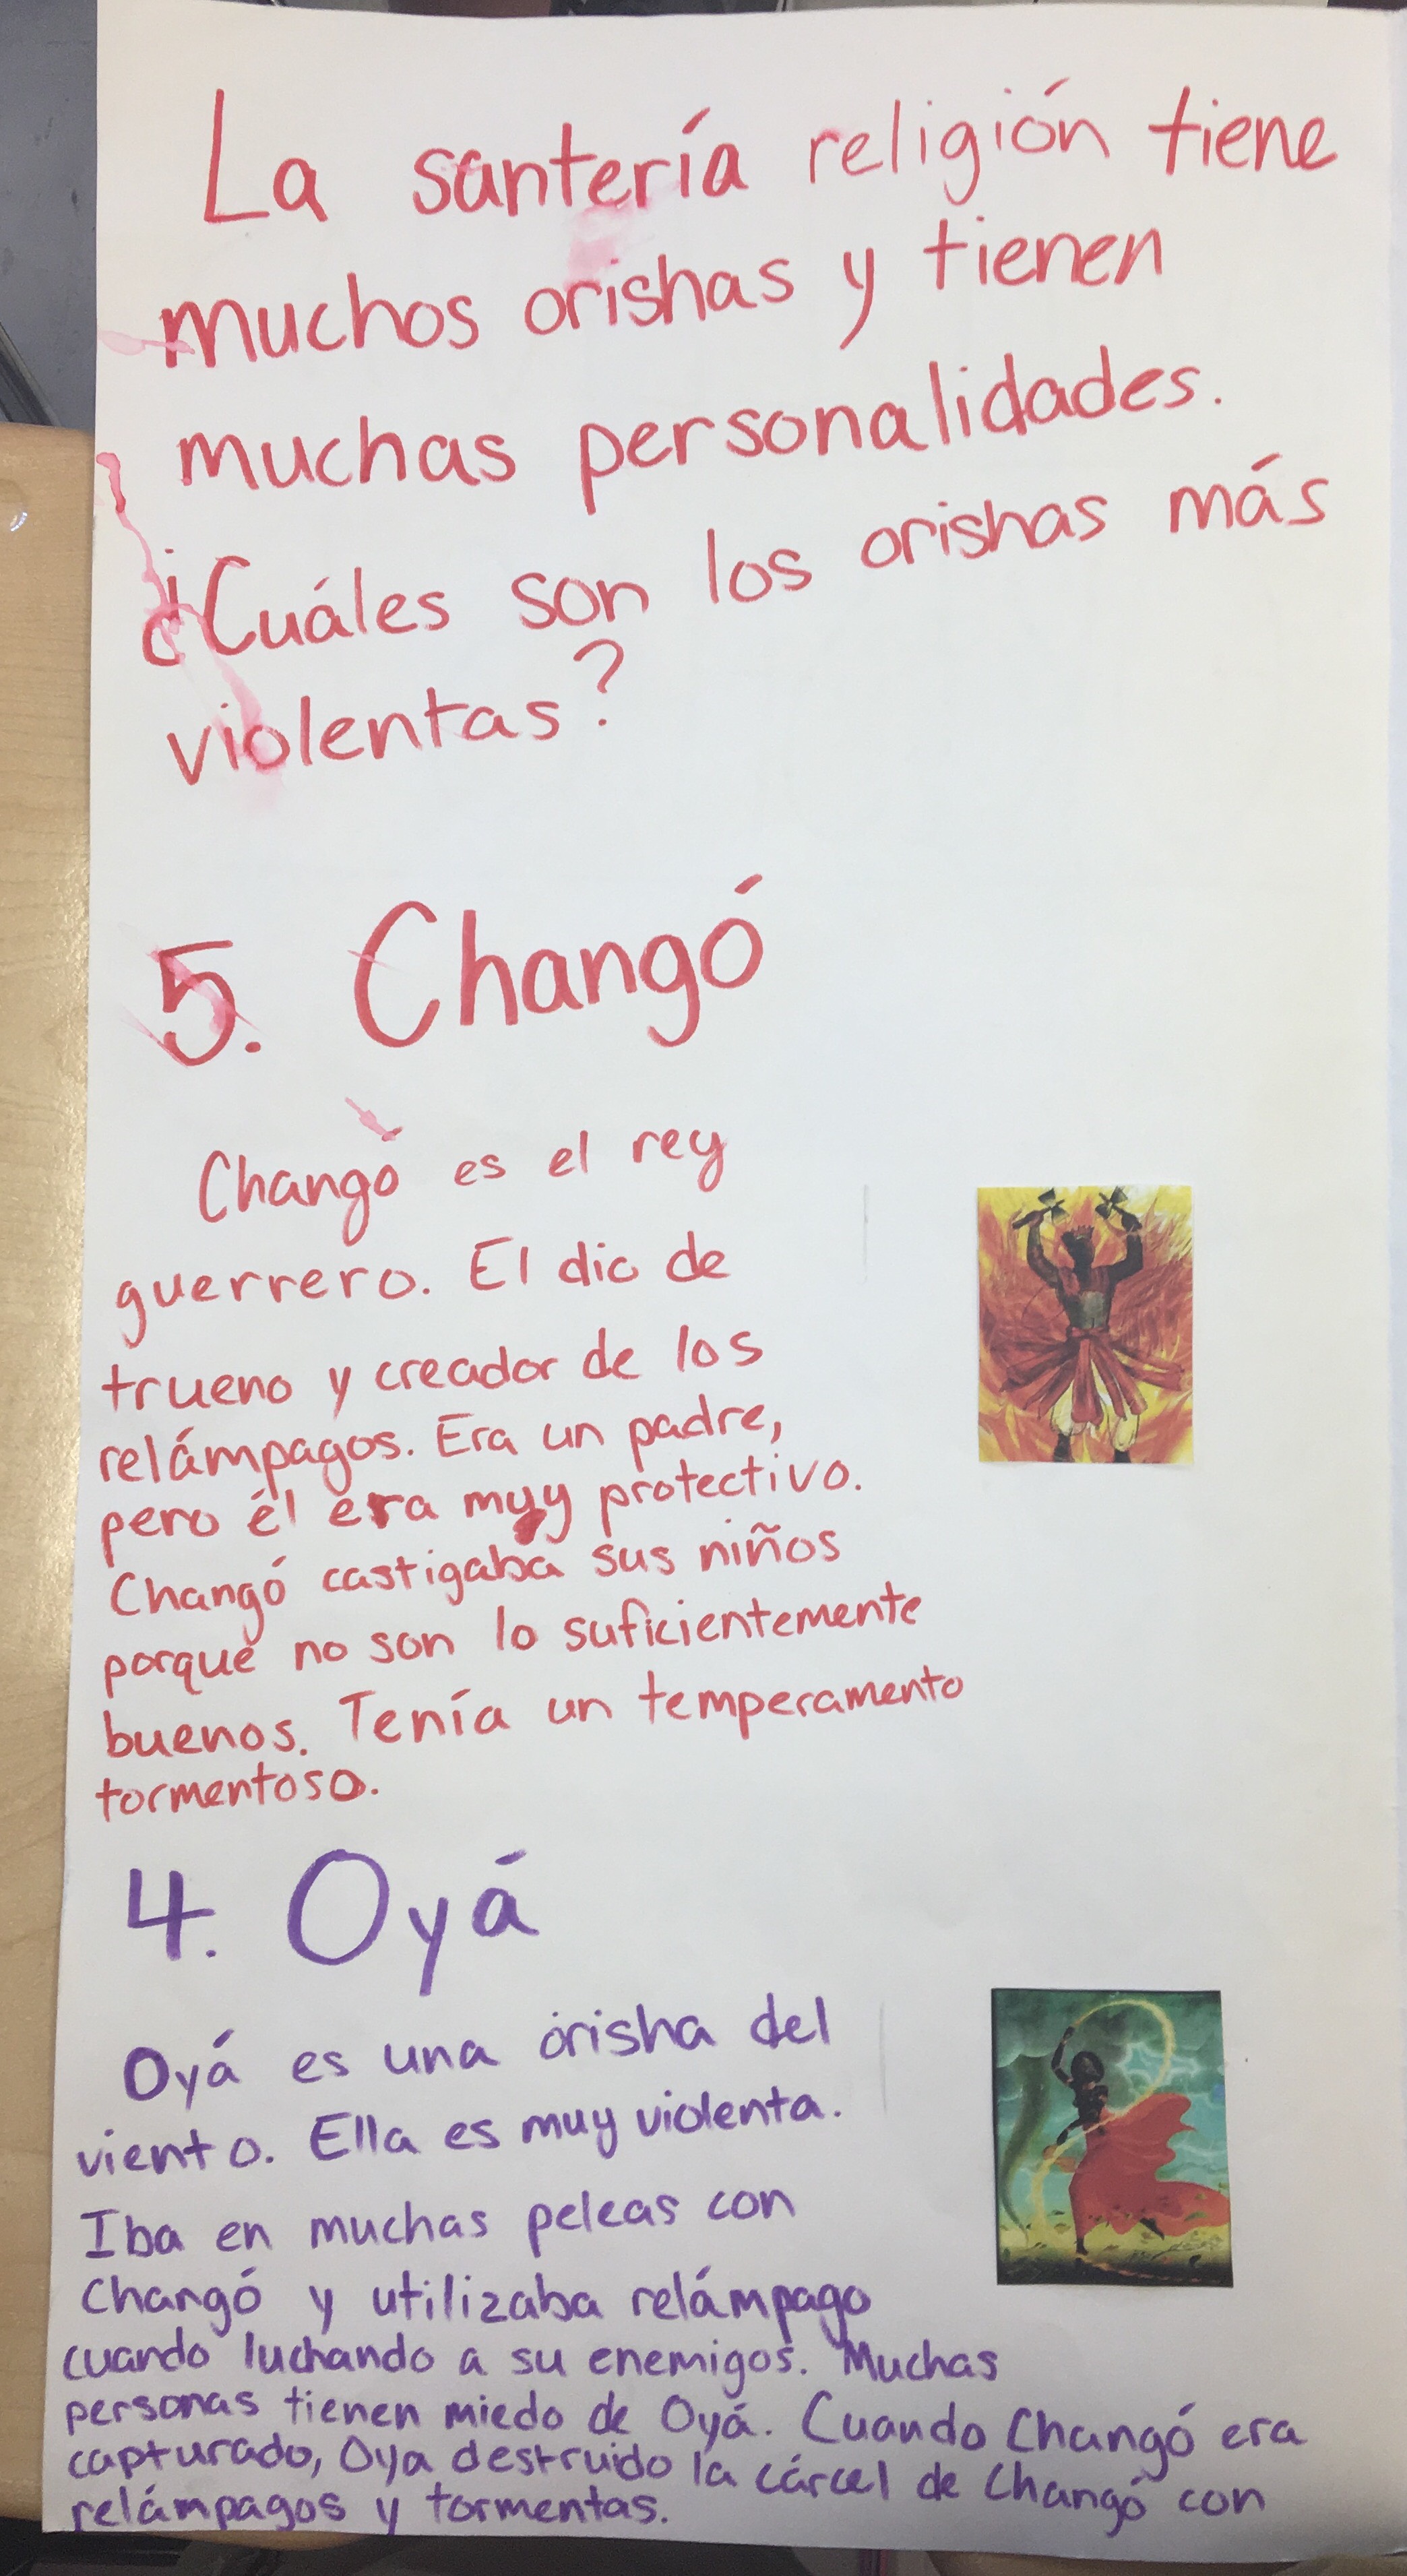 La santería religión tiene
muchos orishas y tienen
muchas personalidades.
¿Cuáles son los orishas más
violentas?
5. Changó
Changó es el rey
guerrero. El dio de
trueno y creador de los
relámpagos. Era un padre,
pero él era muy protectivo.
Changó castigaba sus niños
porque no son lo suficientemente
buenos. Tenía un temperamento
tormentoso.
4. Oyá
Oyá es una orisha del
viento. Ella es muy violenta.
Iba en muchas peleas con
Changó y utilizaba relámpago
cuando luchando a su enemigos. Muchas
personas tienen miedo de Oyá. Cuando Changó era
capturado, Oya destruido la cárcel de Changó con
relámpagos y tormentas.